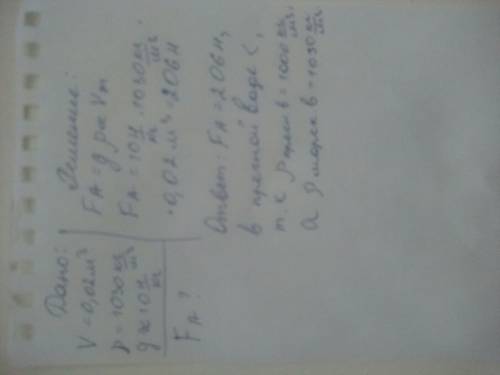 Дано:
V = 0,02 м³
ρ = 1030 кг/м³
g ≈ 10 Н/кг
Fа - ?
Решение:
Fа = g ρж Vт
Fа = 10 Н/кг · 1030 кг/м³ ·
· 0,02 м³ = 206 Н
Ответ: Fа = 206 Н,
в пресной воде <,
т.к ρ пресн в = 1000 кг/м³,
а ρ морск в = 1030 кг/м³